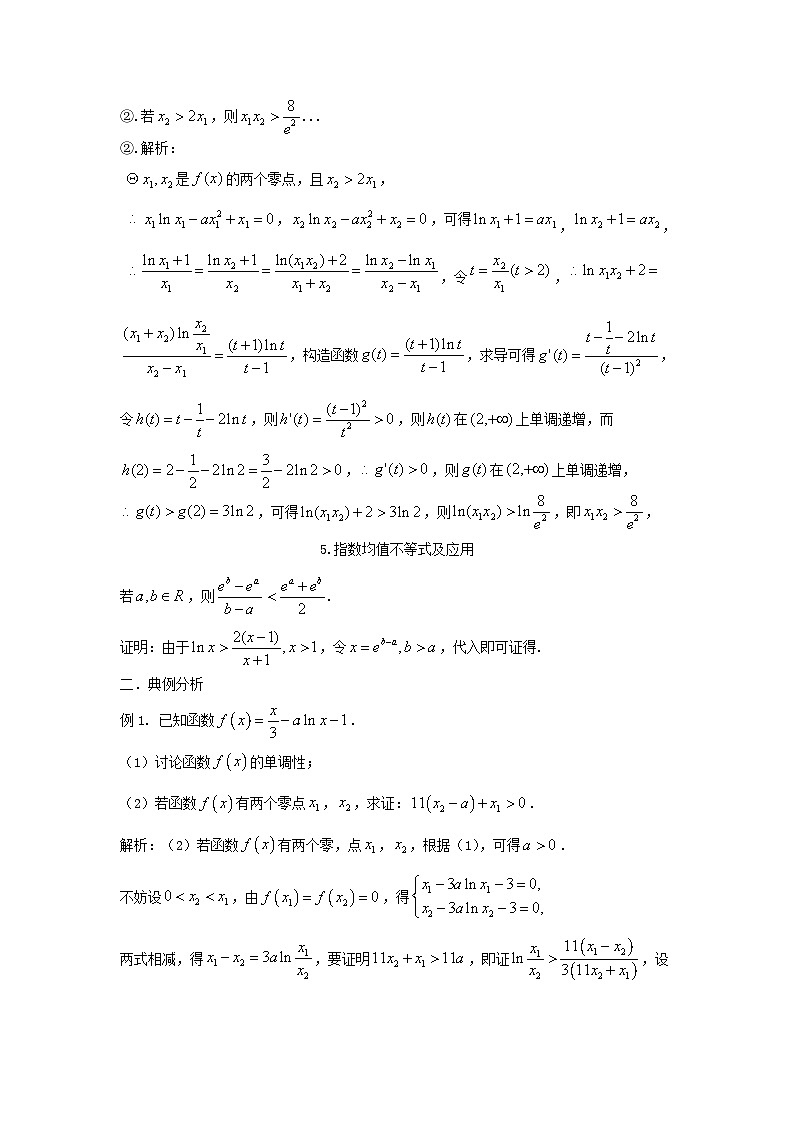 ②.若 $x_2 > 2x_1$,则 $x_1x_2 > \frac{8}{e^2}$...
②.解析:
Θ $x_1, x_2$ 是 $f(x)$ 的两个零点,且 $x_2 > 2x_1$,
∴ $x_1\ln x_1 - ax_1^2 + x_1 = 0$, $x_2\ln x_2 - ax_2^2 + x_2 = 0$,可得 $\ln x_1 + 1 = ax_1$, $\ln x_2 + 1 = ax_2$,
∴ $\frac{\ln x_1+1}{x_1} = \frac{\ln x_2+1}{x_2} = \frac{\ln(x_1x_2)+2}{x_1+x_2} = \frac{\ln x_2 - \ln x_1}{x_2 - x_1}$,令 $t = \frac{x_2}{x_1}(t > 2)$,∴ $\ln x_1x_2 + 2 =$
$\frac{(x_1+x_2)\ln\frac{x_2}{x_1}}{x_2-x_1} = \frac{(t+1)\ln t}{t-1}$,构造函数 $g(t) = \frac{(t+1)\ln t}{t-1}$,求导可得 $g'(t) = \frac{t-\frac{1}{t}-2\ln t}{(t-1)^2}$,
令 $h(t) = t - \frac{1}{t} - 2\ln t$,则 $h'(t) = \frac{(t-1)^2}{t^2} > 0$,则 $h(t)$ 在 $(2,+\infty)$ 上单调递增,而
$h(2) = 2 - \frac{1}{2} - 2\ln 2 = \frac{3}{2} - 2\ln 2 > 0$,∴ $g'(t) > 0$,则 $g(t)$ 在 $(2,+\infty)$ 上单调递增,
∴ $g(t) > g(2) = 3\ln 2$,可得 $\ln(x_1x_2) + 2 > 3\ln 2$,则 $\ln(x_1x_2) > \ln\frac{8}{e^2}$,即 $x_1x_2 > \frac{8}{e^2}$,
5.指数均值不等式及应用
若 $a,b \in R$,则 $\frac{e^b-e^a}{b-a} < \frac{e^a+e^b}{2}$.
证明:由于 $\ln x > \frac{2(x-1)}{x+1}, x > 1$,令 $x = e^{b-a}, b > a$,代入即可证得.
二.典例分析
例1. 已知函数 $f(x) = \frac{x}{3} - a\ln x - 1$.
(1)讨论函数 $f(x)$ 的单调性;
(2)若函数 $f(x)$ 有两个零点 $x_1$, $x_2$,求证:$11(x_2 - a) + x_1 > 0$.
解析:(2)若函数 $f(x)$ 有两个零,点 $x_1$, $x_2$,根据(1),可得 $a > 0$.
不妨设 $0 < x_2 < x_1$,由 $f(x_1) = f(x_2) = 0$,得 $\begin{cases} x_1 - 3a\ln x_1 - 3 = 0, \\ x_2 - 3a\ln x_2 - 3 = 0, \end{cases}$
两式相减,得 $x_1 - x_2 = 3a\ln\frac{x_1}{x_2}$,要证明 $11x_2 + x_1 > 11a$,即证 $\ln\frac{x_1}{x_2} > \frac{11(x_1-x_2)}{3(11x_2+x_1)}$,设